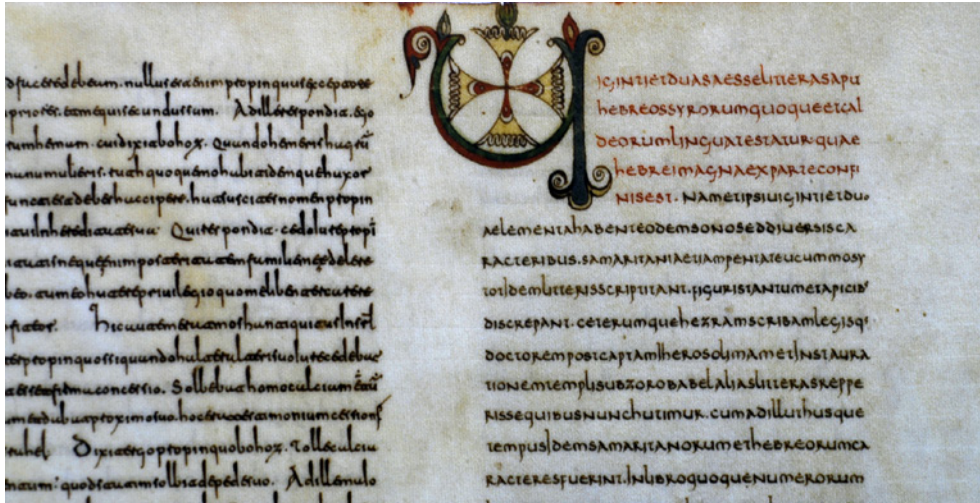 d facere debeam. nullus est enim propinquus excepto te
prior es. et me qui secundus sum. At ille respondit. ego
emam. cui dixit booz. Quando emeris agrum
manu mulieris. ruth quoque moabitidem que uxor
debes accipere. ut suscites nomen propin
in hereditate sua. Qui respondit. cedo iure propi
neque enim posteritatem familie mee delere
beo. tu meo utere privilegio quo me libenter carere
fiteor. Hic autem erat mos antiquitus in isrl
propinquos si quando alter alteri suo iure cedebat
esset firma concessio. Solbebat homo calciamentu
et dabat proximo suo. hoc erat testimonium cessionis
rahel Dixit ergo propinquo booz. Tolle calciu
quod statim solbit de pede suo. At ille
UIGINTI ET DUAS ESSE LITTERAS APU
HEBREOS SYRORUM QUOQUE ET CAL
DEORUM LINGUA TESTATUR. QUAE
HEBREI MAGNA EX PARTE CONFI
NIS EST. NAM ET IPSI UIGINTI ET DU
A ELEMENTA HABENT EODEM SONO SED DIVERSIS CA
RACTERIBUS. SAMARITANI AETIAM PENTATEUCUM MOSY
TOTIDEM LITTERIS SCRIPTITANT. FIGURIS TANTUM ET APICIB
DISCREPANT. CETERUMQUE HEZRAM SCRIBAM LEGISQ
DOCTOREM POST CAPTAM IHEROSOLIMAM ET INSTAURA
TIONEM TEMPLI SUB ZOROBABEL ALIAS LITTERAS REPPE
RISSE QUIBUS NUNC HUTIMUR. CUM AD ILLUT HUSQUE
TEMPUS IDEM SAMARITANORUM ET HEBREORUM CA
RACTERES FUERINT. IN LIBRO QUOQUE NUMERORUM